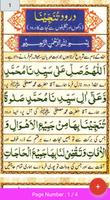 1
درود تنجینا
بِسْمِ اللهِ الرَّحْمٰنِ الرَّحِيْمِ
اَللّٰهُمَّ صَلِّ عَلٰى سَيِّدِنَا مُحَمَّدٍ
وَّعَلٰٓى اٰلِ سَيِّدِنَا مُحَمَّدٍ صَلٰوةً
تُنَجِّيْنَا بِهَا مِنْ جَمِيْعِ الْاَهْوَالِ وَ
الْاٰفَاتِ وَتَقْضِيْ لَنَا بِهَا جَمِيْعَ
Page Number: 1 / 4